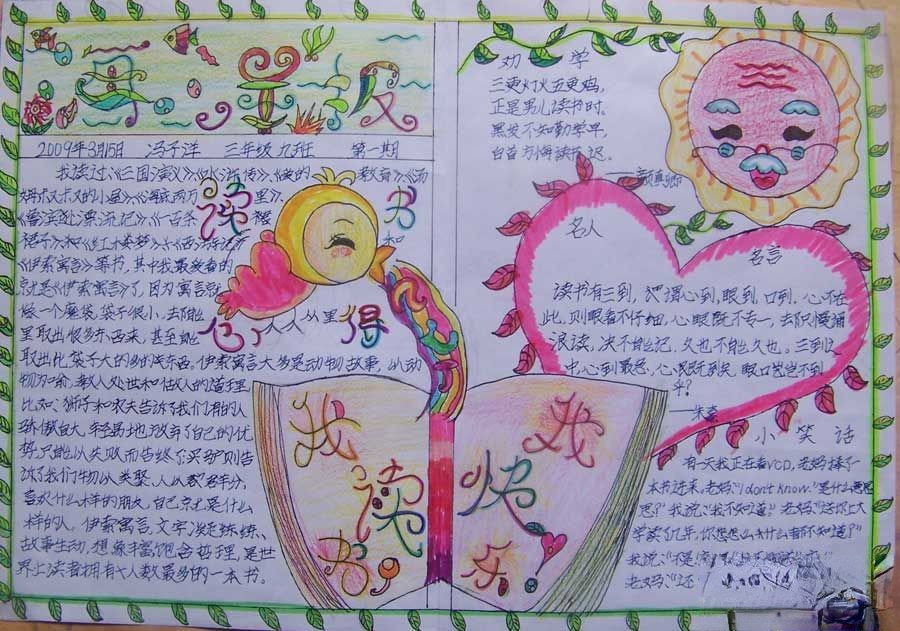 手抄报
2009年3月15日 冯子洋 三年级九班 第一期
读书心得
我读过《三国演义》《水浒传》《爱的教育》《汤
姆叔叔的小屋》《海底两万里》、
《鲁滨逊漂流记》、《一百条裙
子》和《红木楼梦》、《西游记》、
《伊索寓言》等书,其中我最爱看的
就是《伊索寓言》了,因为寓言就
像一个魔袋,袋子很小,却能从里
里取出很多东西来,甚至能
取出比袋子大的多的东西。伊索寓言大多是动物故事,以动
物为喻,教人处世和做人的道理
比如:狮子和农夫告诉了我们有的人
骄傲自大,轻易地放弃了自己的优
势,只能以失败而告终了买驴则告
诉了我们物以类聚,人以群分,
喜欢什么样的朋友,自己就是什么
样的人。伊索寓言,文字凝练,
故事生动,想象丰富,饱含哲理,是世
界上读者拥有人数最多的一本书。
我读书
我快乐
劝学
三更灯火五更鸡,
正是男儿读书时。
黑发不知勤学早,
白首方悔读书迟。
——颜真卿
名人
名言
读书有三到,谓心到,眼到,口到。心不在
此,则眼看不仔细,心眼既不专一,却只慢诵
浪读,决不能记,久也不能久也。三到之
中,心到最急,心既到矣,眼口岂不到
乎?
——朱熹
小笑话
有一天我正在看VCD,老妈捧了一
本书进来,老妈:"I don't know."是什么意思
思?"我说:"我不知道"老妈:"送你上大
学读了几年,你怎么什么都不知道?"
我说:"不是!
老妈:"还